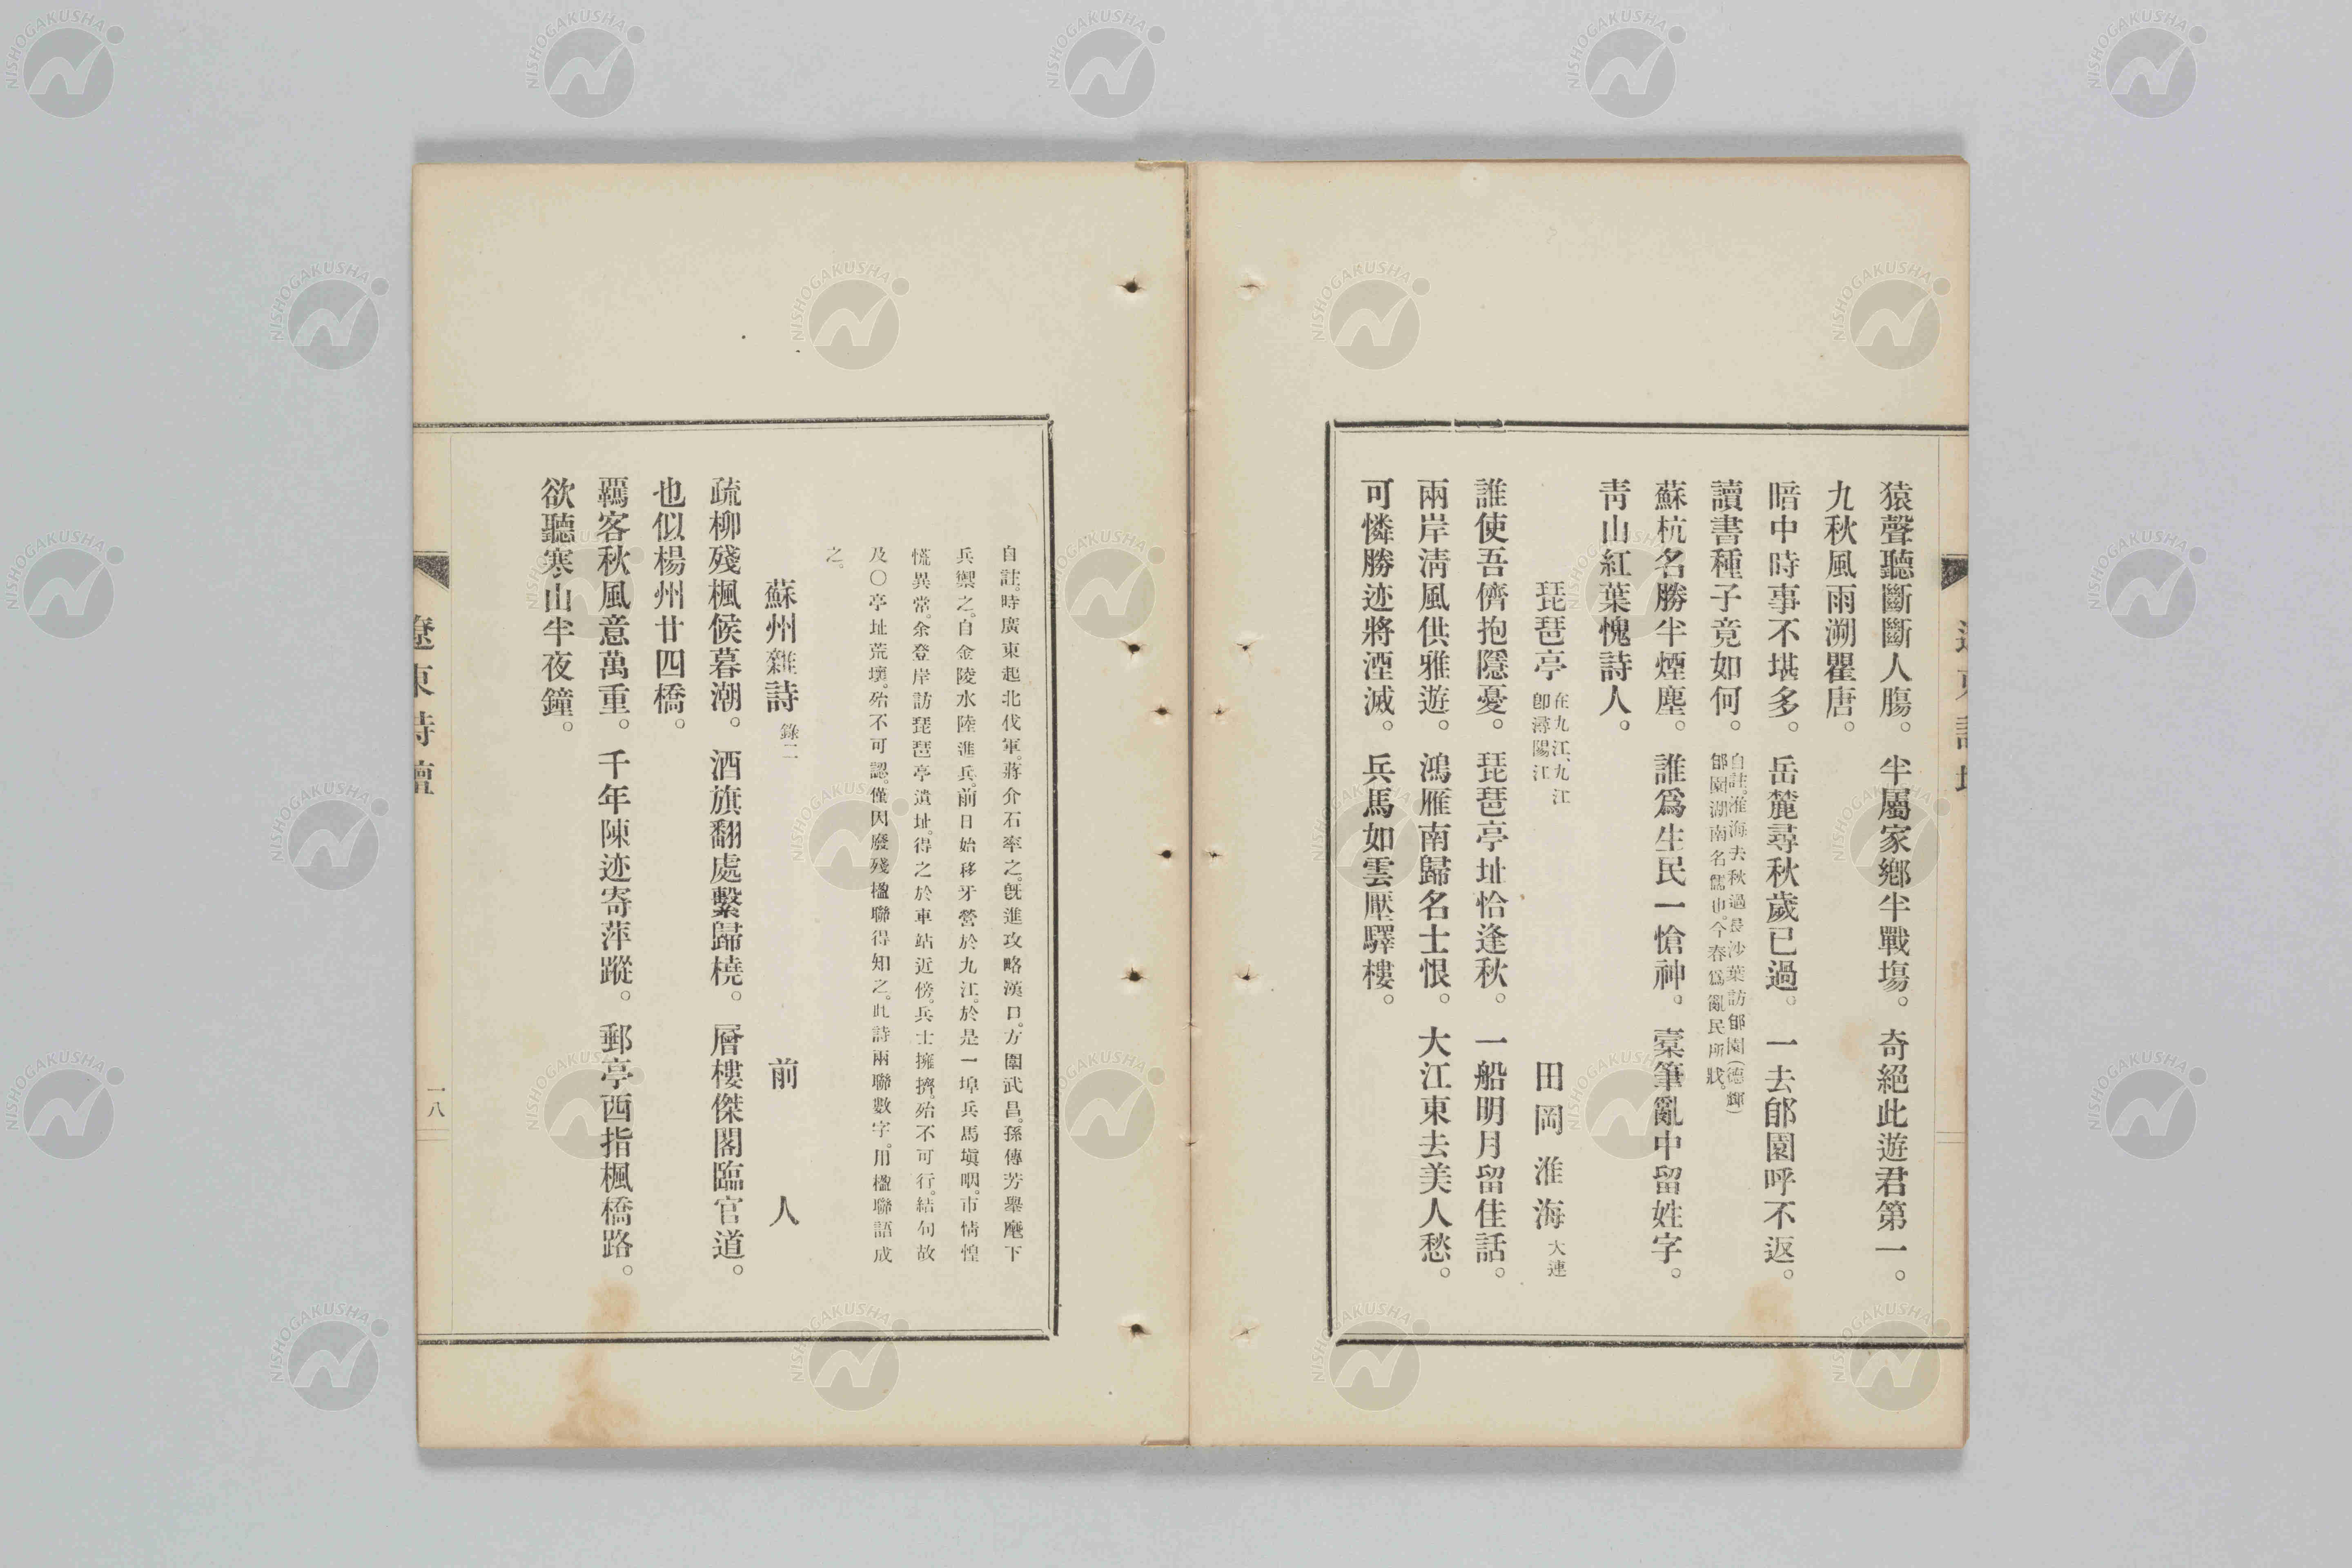 猿聲聽斷斷人膓。半屬家鄉半戰塲。奇絕此遊君第一。
九秋風雨溯瞿唐。
暗中時事不堪多。岳麓尋秋歲已過。一去郋園呼不返。
讀書種子竟如何。自註。淮海去秋過長沙葉訪郋園(德輝)
郋園湖南名儒也。今春爲亂民所戕。
蘇杭名勝半煙塵。誰爲生民一愴神。橐筆亂中留姓字。
靑山紅葉愧詩人。
琵琶亭 在九江、九江
卽潯陽江 田岡淮海 大連
誰使吾儕抱隱憂。琵琶亭址恰逢秋。一船明月留佳話。
兩岸淸風供雅遊。鴻雁南歸名士恨。大江東去美人愁。
可憐勝迹將湮滅。兵馬如雲壓驛樓。
自註。時廣東起北伐軍。蔣介石率之。旣進攻略漢口。方圍武昌。孫傳芳擧麾下
兵禦之。自金陵水陸進兵。前日始移牙營於九江。於是一埠兵馬塡咽。市情惶
慌異常。余登岸訪琵琶亭遺址。得之於車站近傍。兵士擁擠。殆不可行。結句故
及〇亭址荒壞。殆不可認。僅因廢殘楹聯得知之。此詩兩聯數字。用楹聯語成
之。
蘇州雜詩 錄二 前人
疏柳殘楓候暮潮。酒旗翻處繫歸橈。層樓傑閣臨官道。
也似楊州廿四橋。
羈客秋風意萬重。千年陳迹寄萍蹤。郵亭西指楓橋路。
欲聽寒山半夜鐘。
遼東詩壇
一八